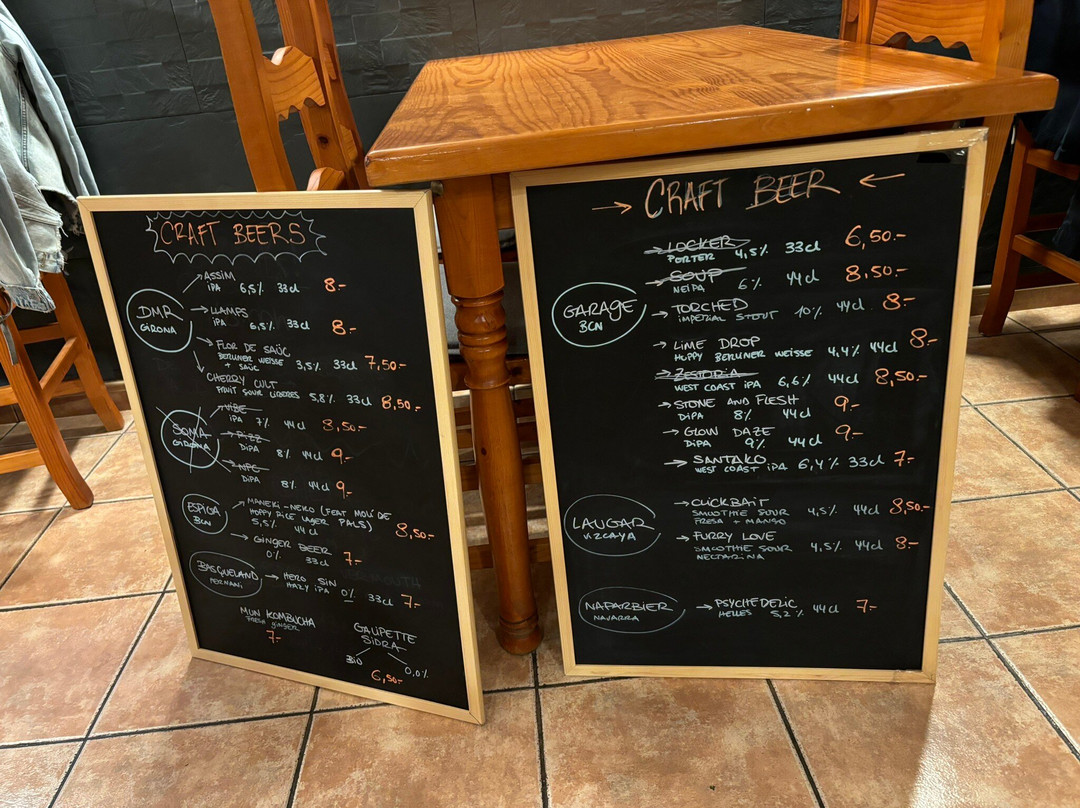 CRAFT BEERS
DMR
GIRONA
→ ASSIM
IPA 6,5% 33cl 8.-
→ LLAMPS
IPA 6,5% 33cl 8.-
→ FLOR DE SAÜC
BERLINER WEISSE
+ SAÜC 3,5% 33cl 7,50.-
CHERRY CULT
FRUIT SOUR CIRERES 5,8% 33cl 8,50.-
SOMA
GIRONA
→ VIBE
IPA 7% 44cl 8,50.-
→ RIZZ
DIPA 8% 44cl 9.-
→ NPC
DIPA 8% 44cl 9.-
ESPIGA
BCN
→ MANEKI-NEKO (FEAT MOLÍ DE
HOPPY RICE LAGER PALS)
5,5% 44cl 8,50.-
→ GINGER BEER
0% 33cl 7.-
BASQUELAND
→ HERO SIN
HAZY IPA 0% 33cl 7.-
MUN KOMBUCHA
FRESH GINGER
7.-
GALIPETTE
SIDRA
BIO 0,0%
6,50.-
→ CRAFT BEER ←
→ LOCKER
PORTER 4,5% 33cl 6,50.-
→ SOUP
NEIPA 6% 44cl 8,50.-
GARAGE
BCN
→ TORCHED
IMPERIAL STOUT 10% 44cl 8.-
→ LIME DROP
HOPPY BERLINER WEISSE 4,4% 44cl 8.-
→ ZESTORIA
WEST COAST IPA 6,6% 44cl 8,50.-
→ STONE AND FLESH
DIPA 8% 44cl 9.-
→ GLOW DAZE
DIPA 9% 44cl 9.-
→ SANTAKO
WEST COAST IPA 6,4% 33cl 7.-
LAUGAR
VIZCAYA
→ CLICKBAIT
SMOOTHIE SOUR 4,5% 44cl 8,50.-
FRESA + MANGO
→ FURRY LOVE
SMOOTHIE SOUR 4,5% 44cl 8.-
NECTARINA
NAPARBIER
NAVARRA
→ PSYCHEDELIC
HELLES 5,2% 44cl 7.-